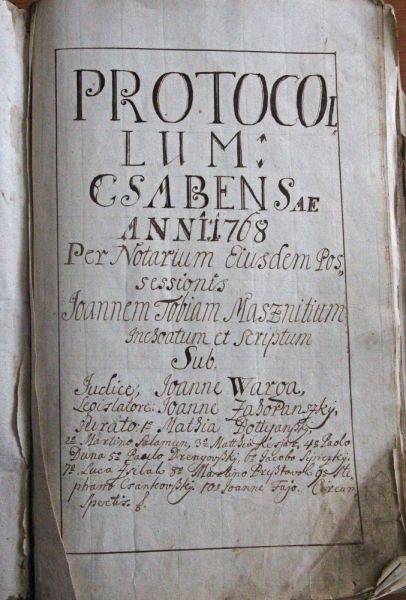 PROTOCOL
LUM:
CSABENSAE
ANNI 1768
Per Notarium Eiusdem Pos,,
sessionis
Joannem Tobiam Masznitium
Inchoatum et Scriptum
Sub.
Judice; Joanne Warga,
Legislatore: Joanne Zahoranszky,
Jurato: 1º Mathia
2º Martino Salamun, 3º Matthia 4º Paolo
Duna 5º Paulo Drenyovszky, 6º Jacobo
7º Luca 8º Martino 9º Ste,,
phano Csankovszky. 10º Joanne Fajo. Circum
spectis.